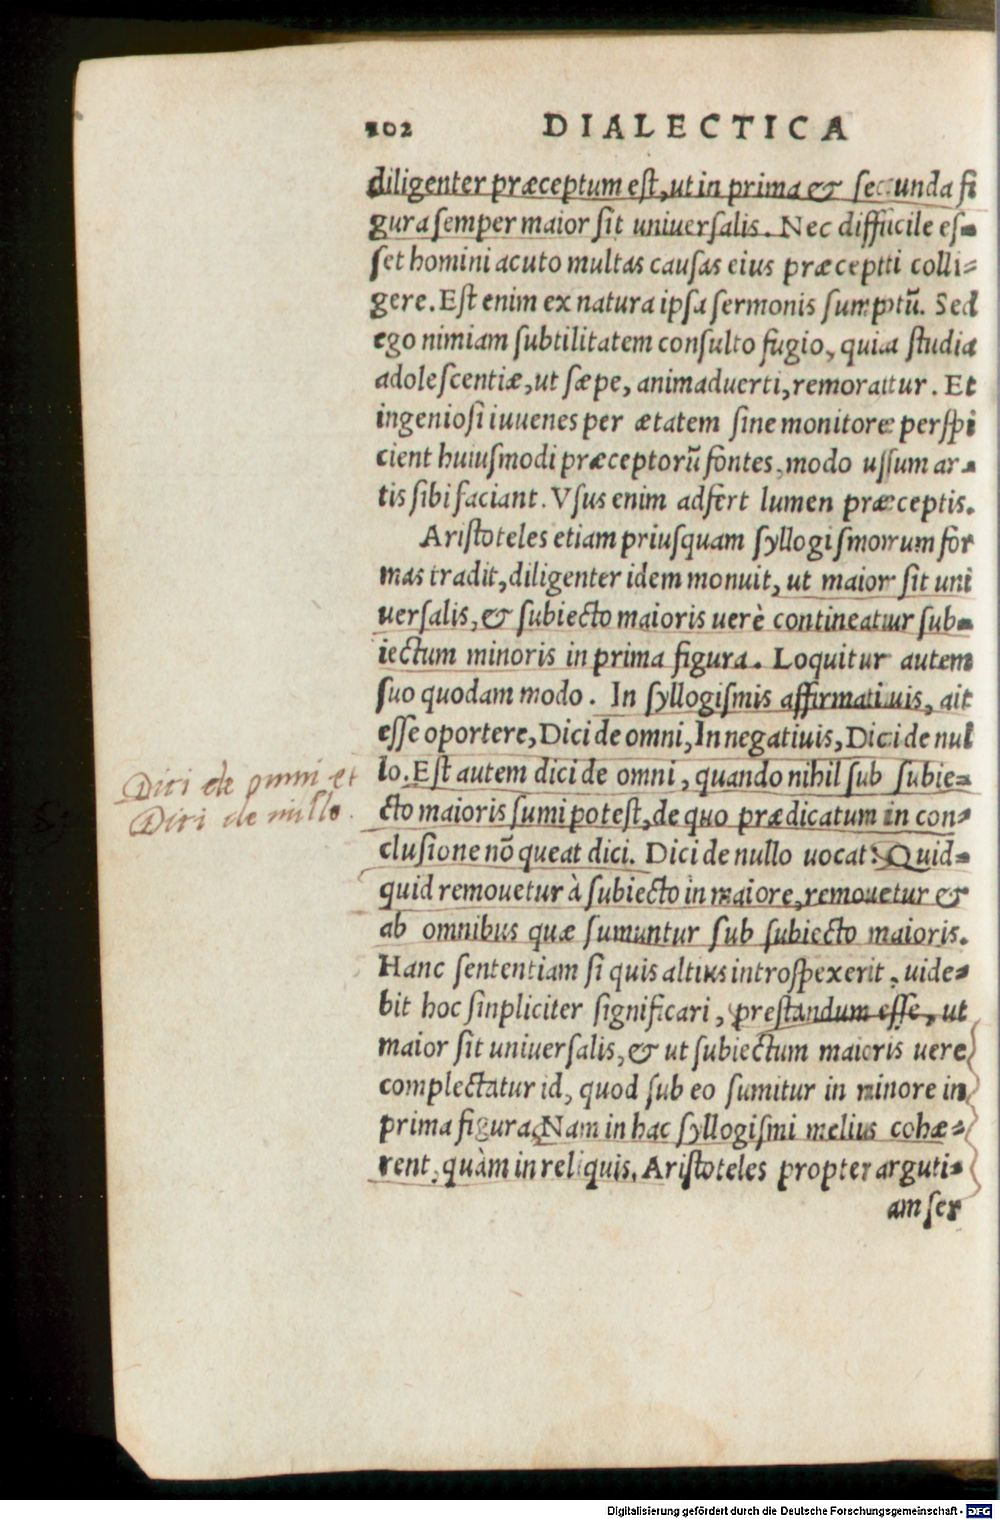 102 DIALECTICA
diligenter præceptum est, ut in prima & secunda fi
gura semper maior sit uniuersalis. Nec difficile es-
set homini acuto multas causas eius præcepti colli-
gere. Est enim ex natura ipsa sermonis sumptū. Sed
ego nimiam subtilitatem consulto fugio, quia studia
adolescentiæ, ut sæpe, animaduerti, remorantur. Et
ingeniosi iuuenes per ætatem sine monitore perspi
cient huiusmodi præceptorū fontes, modo usum ar-
tis sibi faciant. Vsus enim adfert lumen præceptis.
Aristoteles etiam priusquam syllogismorum for
mas tradit, diligenter idem monuit, ut maior sit uni
uersalis, & subiecto maioris uerè contineatur sub-
iectum minoris in prima figura. Loquitur autem
suo quodam modo. In syllogismis affirmatiuis, ait
esse oportere, Dici de omni, In negatiuis, Dici de nul
lo. Est autem dici de omni, quando nihil sub subie-
cto maioris sumi potest, de quo prædicatum in con-
clusione nō queat dici. Dici de nullo uocat: Quid-
quid remouetur à subiecto in maiore, remouetur &
ab omnibus quæ sumuntur sub subiecto maioris.
Hanc sententiam si quis altius introspexerit, uide-
bit hoc sinpliciter significari, prestandum esse, ut
maior sit uniuersalis, & ut subiectum maioris uere
complectatur id, quod sub eo sumitur in minore in
prima figura. Nam in hac syllogismi melius cohæ-
rent, quàm in reliquis. Aristoteles propter arguti-
am ser
Dici de omni et
Dici de nullo.
Digitalisierung gefördert durch die Deutsche Forschungsgemeinschaft - DFG